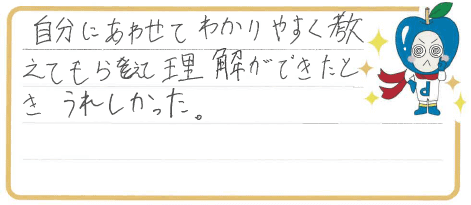 自分にあわせてわかりやすく教
えてもらえて理解ができたと
き うれしかった。
d